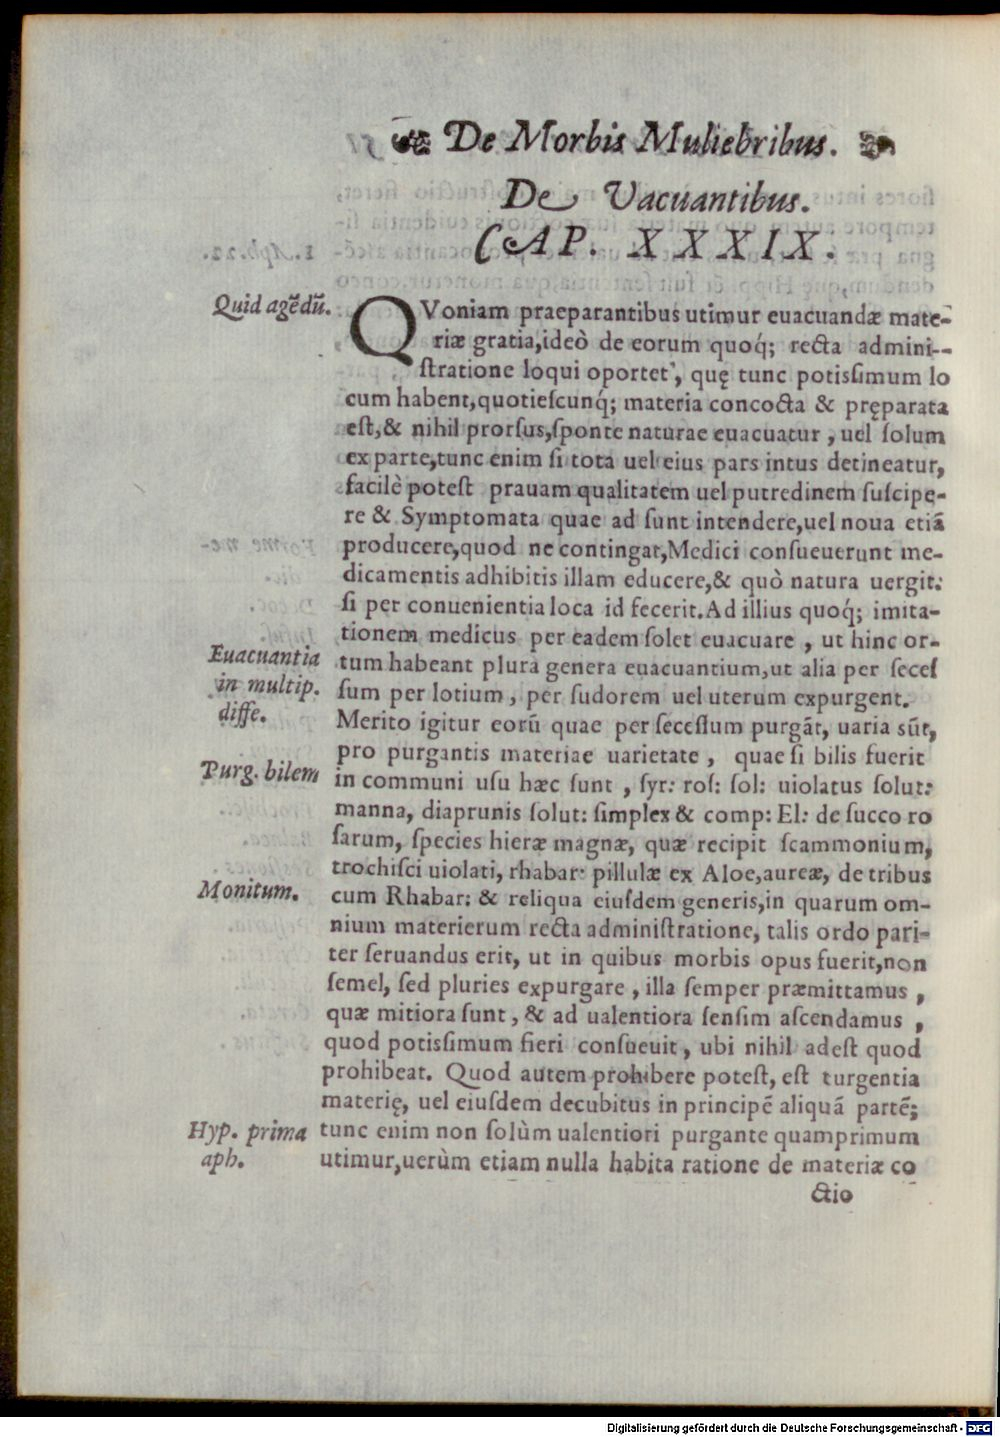 De Morbis Muliebribus.
De Vacuantibus.
CAP. XXXIX.
Quid agēdū.
QVoniam praeparantibus utimur euacuandæ mate-
riæ gratia,ideò de eorum quoq́; recta admini--
ſtratione loqui oportet, quę tunc potisſimum lo
cum habent,quotieſcunq́; materia concocta & pręparata
eſt,& nihil prorſus,ſponte naturae euacuatur , uel ſolum
ex parte,tunc enim ſi tota uel eius pars intus detineatur,
facilè poteſt prauam qualitatem uel putredinem ſuſcipe-
re & Symptomata quae ad ſunt intendere,uel noua etiã
producere,quod ne contingat,Medici conſueuerunt me-
dicamentis adhibitis illam educere,& quò natura uergit:
ſi per conuenientia loca id fecerit.Ad illius quoq́; imita-
tionem medicus per eadem ſolet euacuare , ut hinc or-
Euacuantia
in multip.
diffe.
tum habeant plura genera euacuantium,ut alia per ſeceſ
ſum per lotium , per ſudorem uel uterum expurgent.
Merito igitur eorũ quae per ſeceſſum purgãt, uaria sũt,
pro purgantis materiae uarietate , quae ſi bilis fuerit
Purg. bilem
in communi uſu hæc ſunt , ſyr: roſ: ſol: uiolatus ſolut:
manna, diaprunis ſolut: ſimplex & comp: El: de ſucco ro
ſarum, ſpecies hieræ magnæ, quæ recipit ſcammonium,
trochiſci uiolati, rhabar: pillulæ ex Aloe,aureæ, de tribus
Monitum.
cum Rhabar: & reliqua eiuſdem generis,in quarum om-
nium materierum recta adminiſtratione, talis ordo pari-
ter ſeruandus erit, ut in quibus morbis opus fuerit,non
ſemel, ſed pluries expurgare , illa ſemper præmittamus ,
quæ mitiora ſunt , & ad ualentiora ſenſim aſcendamus ,
quod potisſimum fieri conſueuit , ubi nihil adeſt quod
prohibeat. Quod autem prohibere poteſt, eſt turgentia
materię, uel eiuſdem decubitus in principẽ aliquã partẽ;
Hyp. prima
aph.
tunc enim non ſolùm ualentiori purgante quamprimum
utimur,uerùm etiam nulla habita ratione de materiæ co
ctio
Digitalisierung gefördert durch die Deutsche Forschungsgemeinschaft - DFG